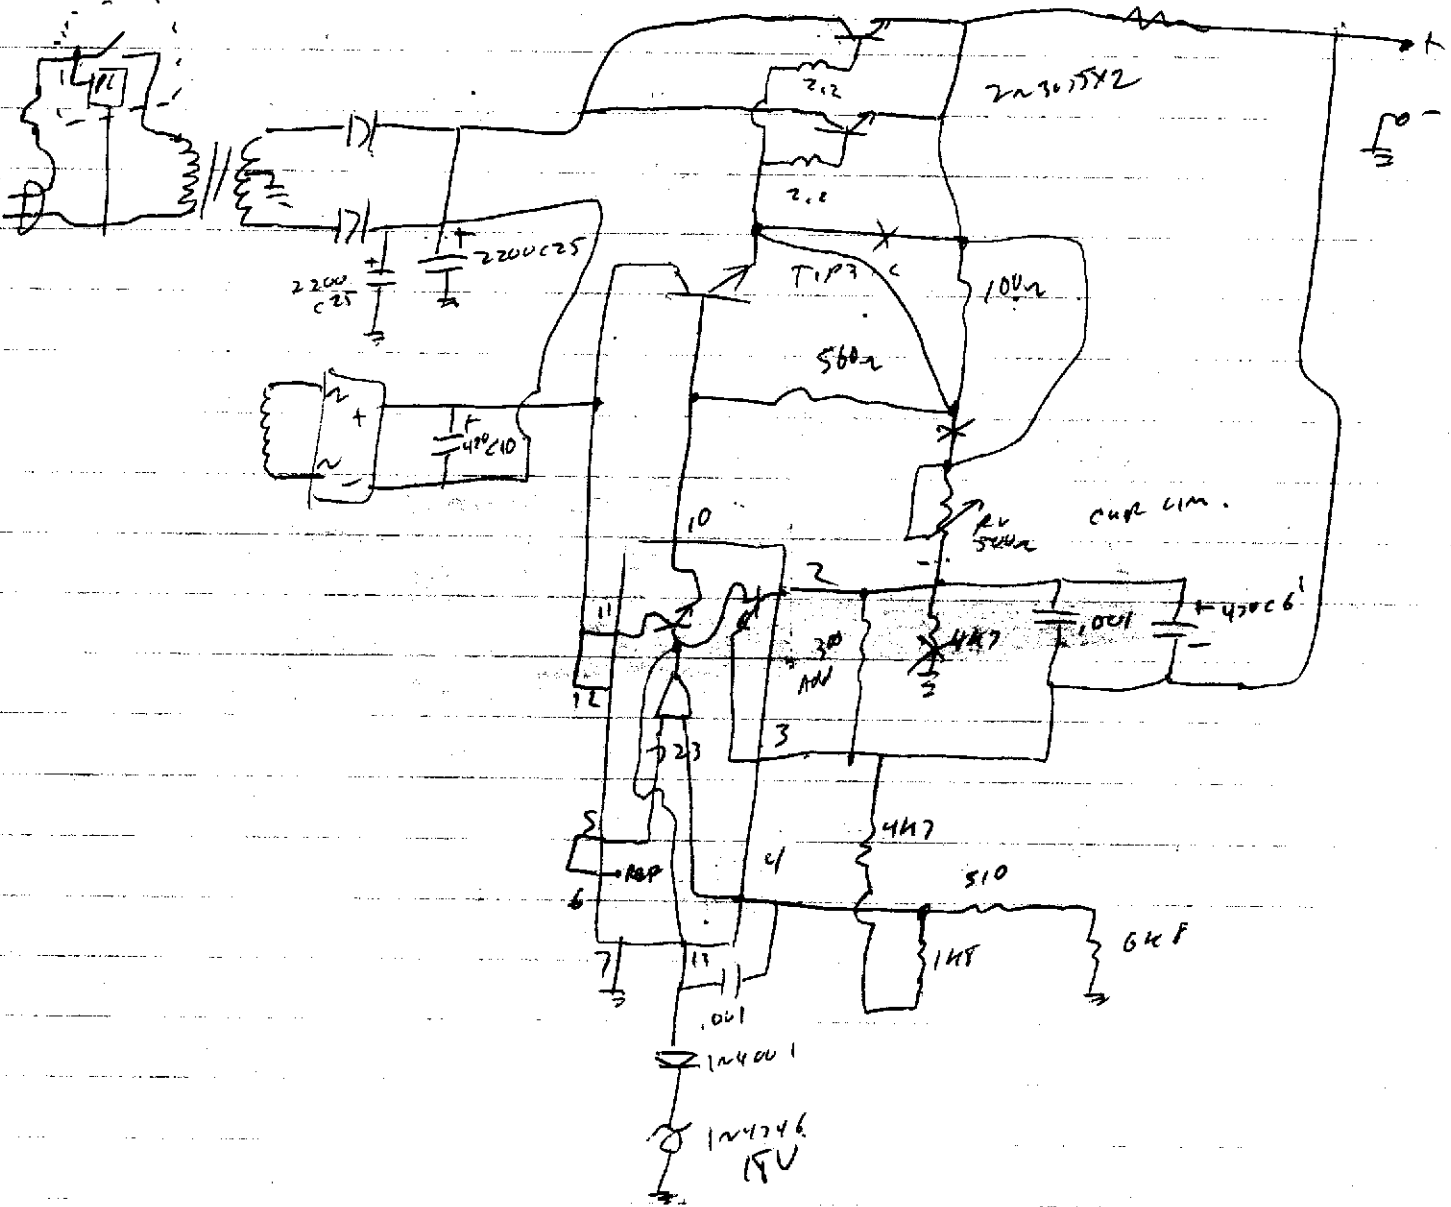 PL
+
2.2
2N3055X2
-
2.2
+
2200C25
+
2200
C25
TIP3 C
100Ω
560Ω
~
+
~
-
+
470C10
10
RV
500Ω
CUR LIM.
2
11
.001
+ 470C6
-
4K7
Add
12
723
3
5
4K7
4
REF
510
6
7
13
1K8
6K8
.001
1N4001
1N4746
18V